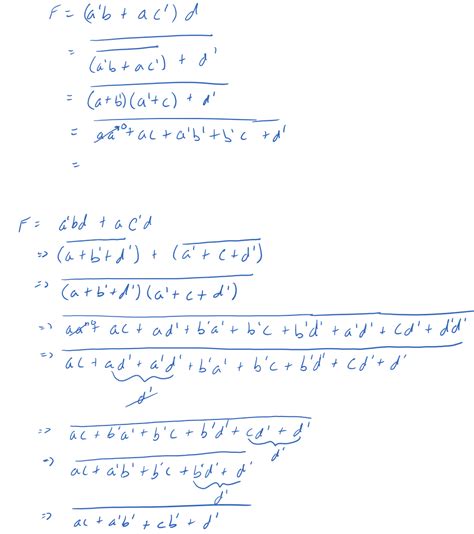 F = (a'b + ac') d
= \overline{\overline{(a'b + ac')} + d'}
= \overline{(a+b')(a'+c) + d'}
= \overline{aa'^0 + ac + a'b' + b'c + d'}
=
F = a'bd + ac'd
=> \overline{(a+b'+d')} + \overline{(a'+c+d')}
=> \overline{(a+b'+d')(a'+c+d')}
=> \overline{aa'^0 + ac + ad' + b'a' + b'c + b'd' + a'd' + cd' + d'd'}
=> \overline{ac + ad' + a'd' + b'a' + b'c + b'd' + cd' + d'}
d'
=> \overline{ac + b'a' + b'c + b'd' + cd' + d'}
d'
=> \overline{ac + a'b' + b'c + b'd' + d'}
d'
=> \overline{ac + a'b' + cb' + d'}